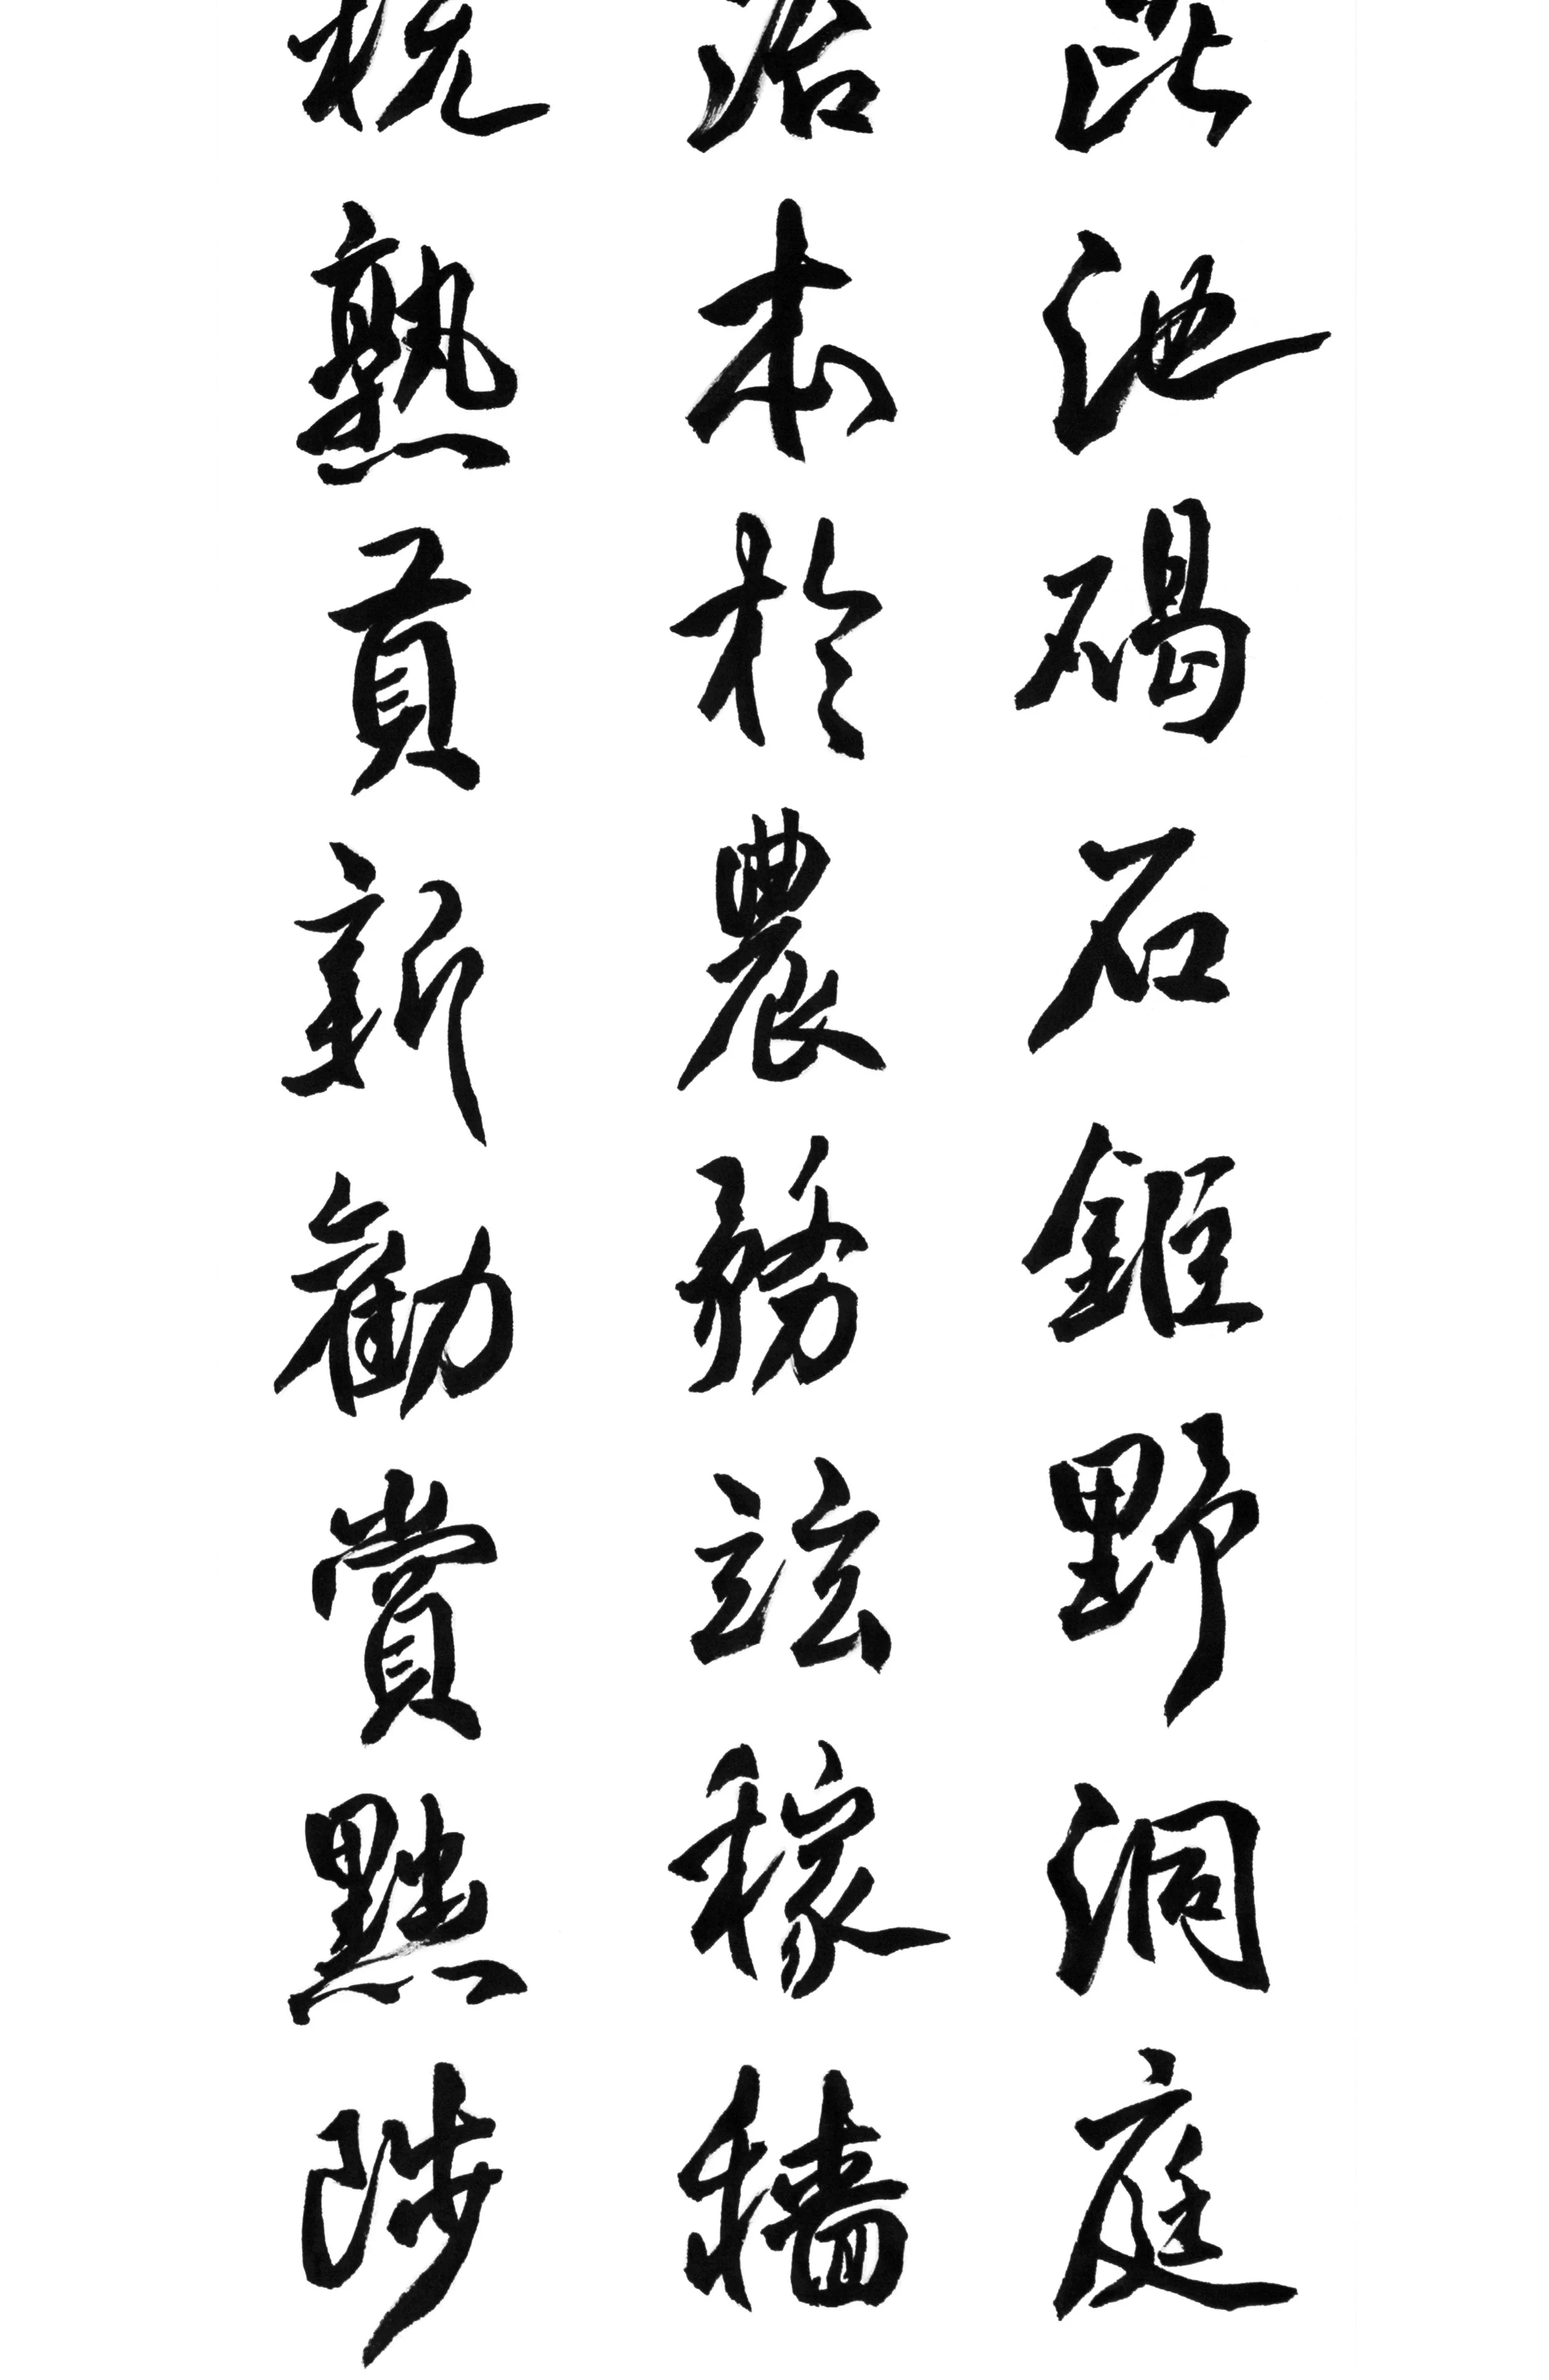 昆池碣石鉅野洞庭
治本於農務茲稼穡
稅熟貢新勸賞黜陟